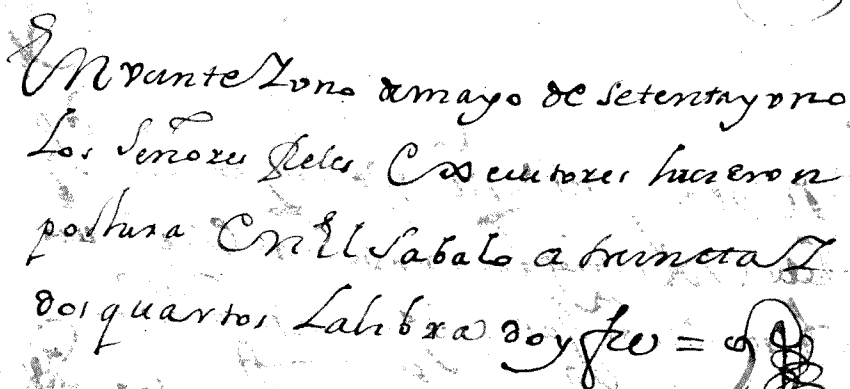 En vante Z uno de mayo de setenta y uno
Los Señores fieles Executores hicieron
postura En El sabalo a treinta Z
dos quartos La libra doy fee =